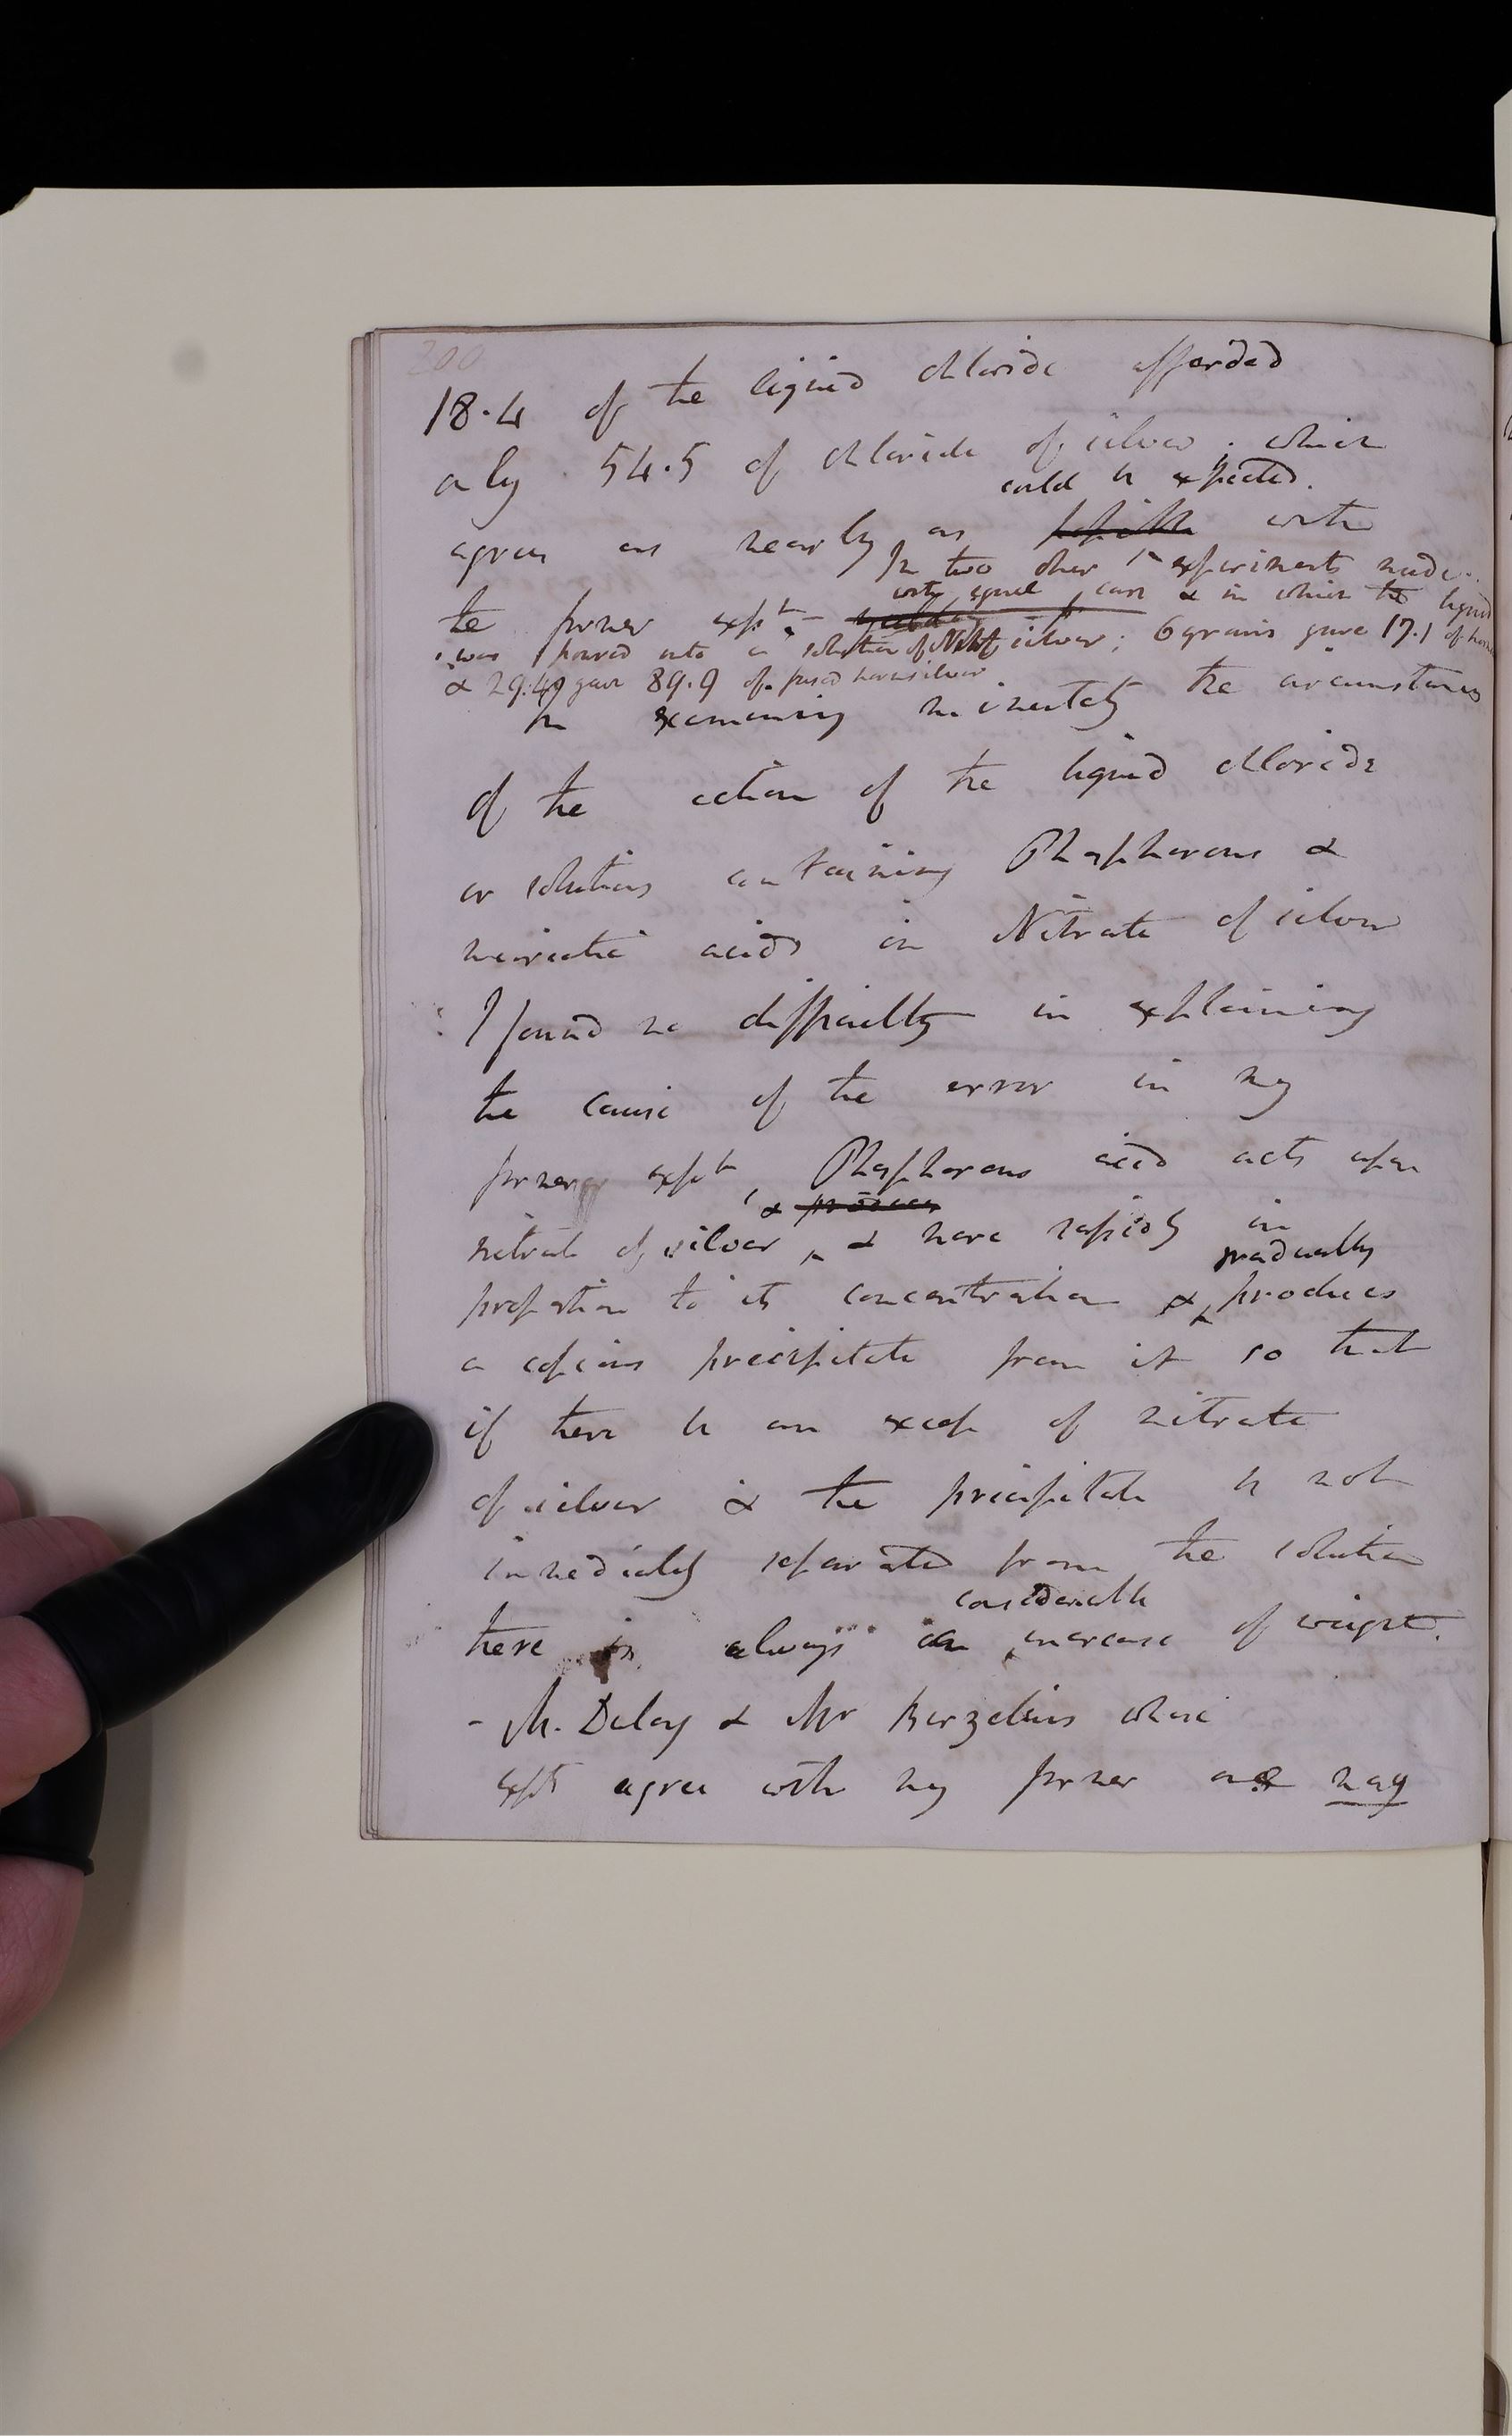 200
18.4 of the liquid chloride afforded
only 54.5 of chloride of silver. which
could be expected.
agrees as nearly as possible with
In two other experiments made
the former expts
with equal care & in which the liquid
was poured into a solution of Nit of silver; 6 grains gave 17.1 of horn
& 29.49 gave 89.9 of fused hornsilver
In examining minutely the circumstances
of the action of the liquid chloride
or solutions containing Phosphorous &
muriatic acids on Nitrate of silver
I found no difficulty in explaining
the cause of the error in my
former expts Phosphorous acid acts upon
& produces
nitrate of silver, & more rapidly in
gradually
proportion to its concentration & produces
a copious precipitate from it so that
if there be an excess of nitrate
of silver & the precipitate be not
immediately separated from the solution
considerable
there is always an increase of weight.
- M. Dulong & Mr Berzelius whose
expts agree with my former ones may